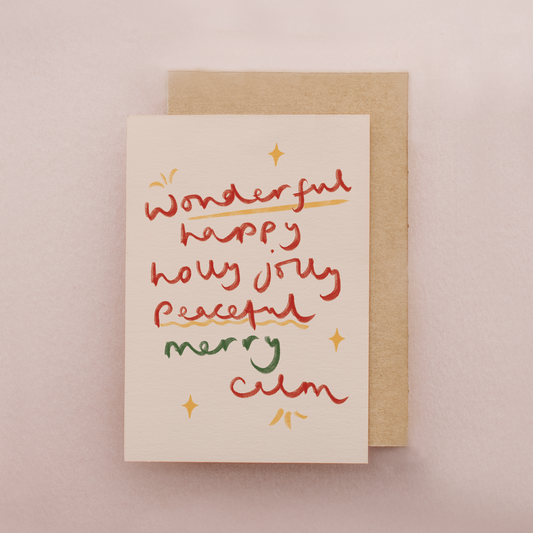 wonderful
happy
holly jolly
peaceful
merry
calm